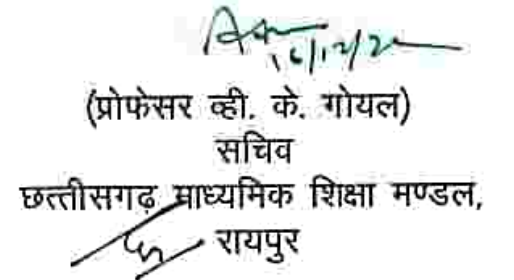 (प्रोफेसर व्ही. के. गोयल)
सचिव
छत्तीसगढ़ माध्यमिक शिक्षा मण्डल,
रायपुर